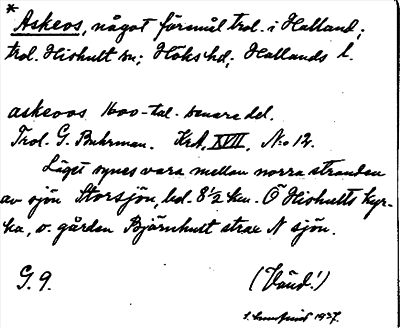 * Askeos, något föremål trol. i Halland;
trol. Hishult sn; Höks hd; Hallands l.
askeoos 1600-tal. senare del.
Trol. G. Buhrman. Krt. XVII, N:o 12.
Läget synes vara mellan norra stranden
av sjön Storsjön, bel. 8½ km. Ö Hishults kyr-
ka, o. gården Björnhult strax N sjön.
G. 9. (Vänd!)
1937.